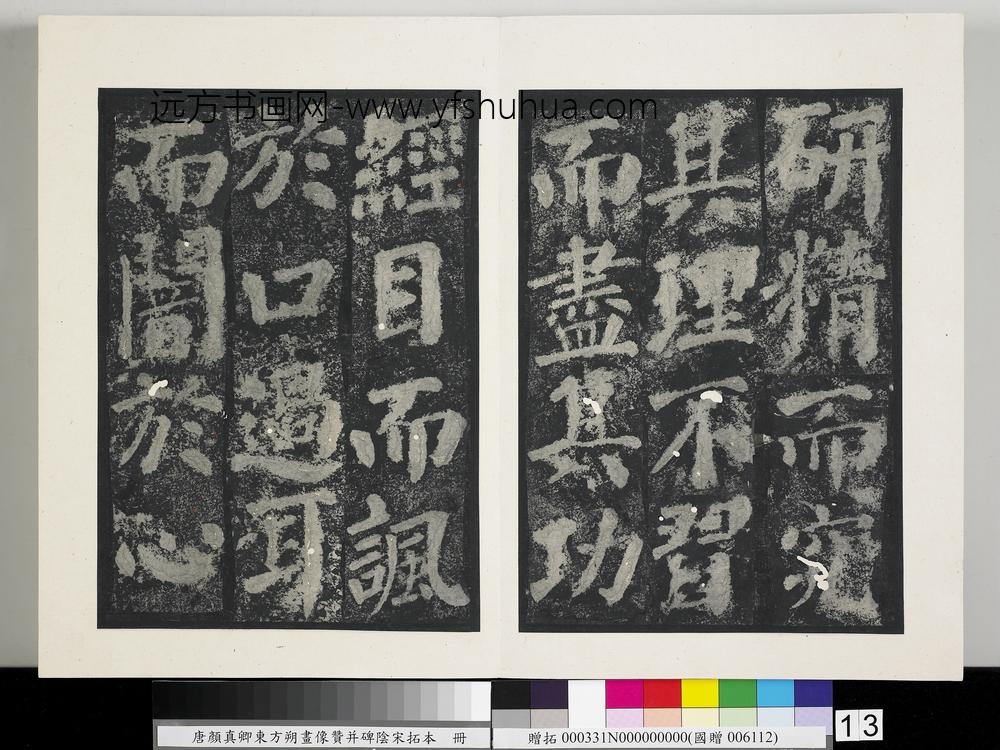 远方书画网-www.yfshuhua.com
研精而究
其理不習
而盡其功
經目而諷
於口過耳
而闇於心
唐顏真卿東方朔畫像贊并碑陰宋拓本 冊
贈拓 000331N000000000(國贈 006112)
13